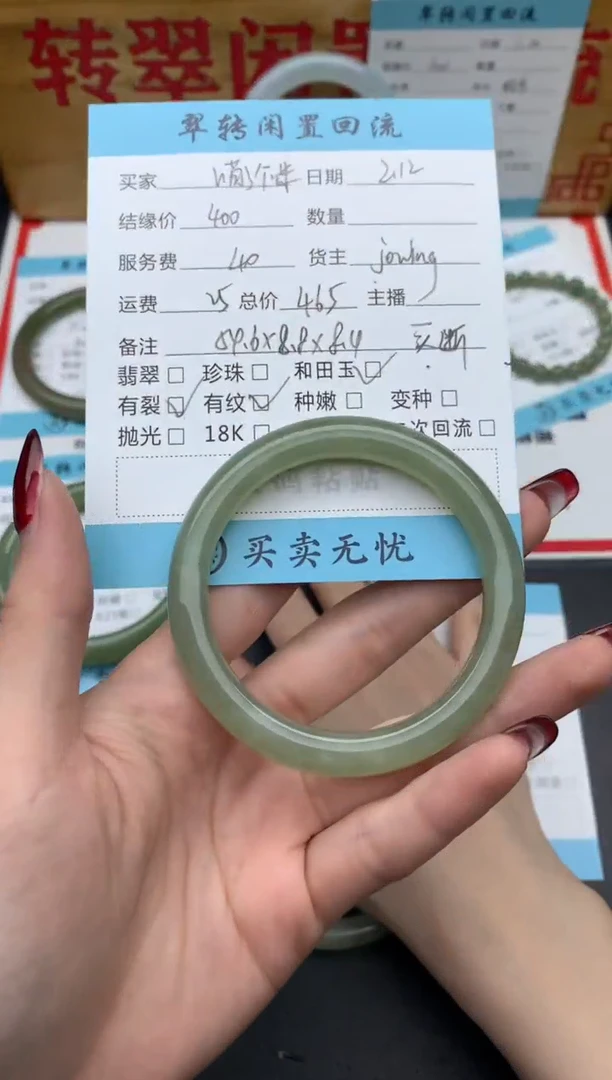 转翠闲置
翠转闲置回流
翠转闲置回流
买家 日期 2.12
结缘价 400 数量
服务费 40 货主 jowing
运费 25 总价 465 主播
备注 59.6x8.8x8.4 买断
翡翠□ 珍珠□ 和田玉☑
有裂☑ 有纹☑ 种嫩□ 变种□
抛光□ 18K□ 次回流□
粘贴
买卖无忧